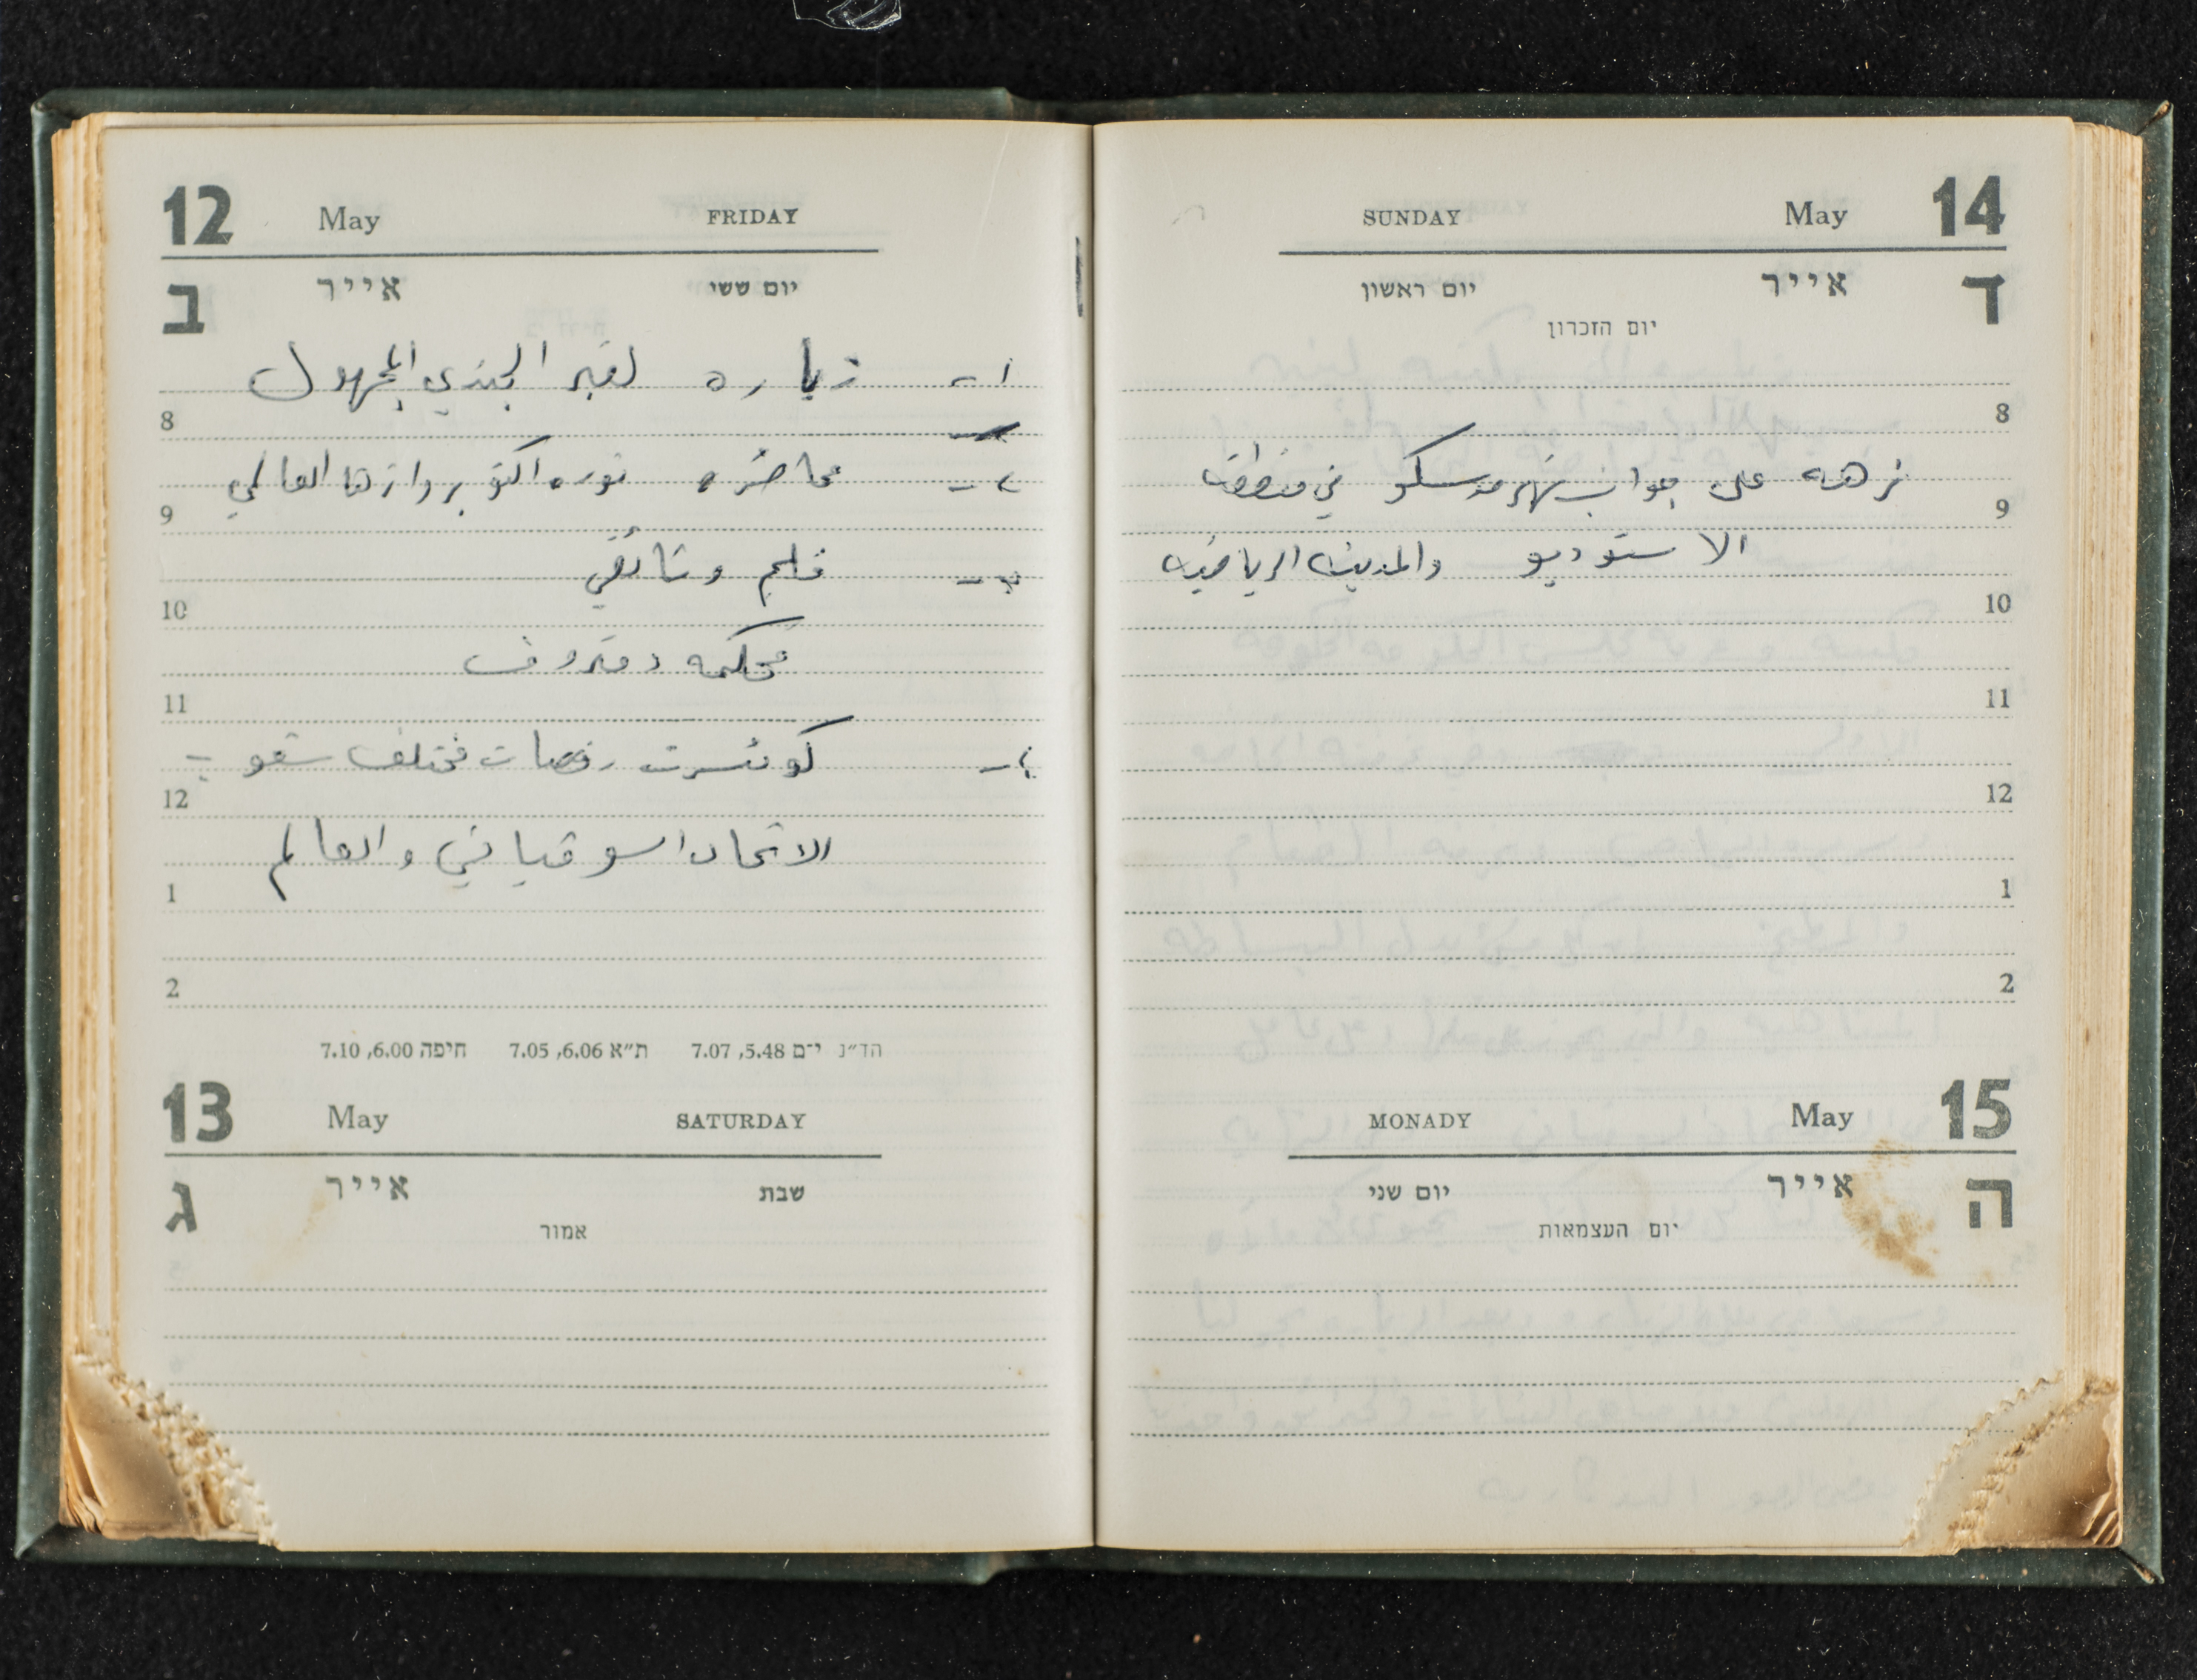 12 May FRIDAY
ב אייר יום ששי
١- زياره لقبر الجندي المجهول
8
٢- محاضره ثوره اكتوبر واثرها العالمي
9
٣- فلم وثائقي
10
محكمه
11
٤- كونسرت رقصات مختلف شعوب
12
الاتحاد السوفياتي والعالم
1
2
הד״נ י־ם 5.48, 7.07 ת״א 6.06, 7.05 חיפה 6.00, 7.10
13 May SATURDAY
ג אייר שבת
אמור
SUNDAY May 14
יום ראשון אייר ד
יום הזכרון
8
نزهه على جوانب نهر موسكو في منطقه
9
الاستوديو والمدينه الرياضيه
10
11
12
1
2
MONADY May 15
יום שני אייר ה
יום העצמאות